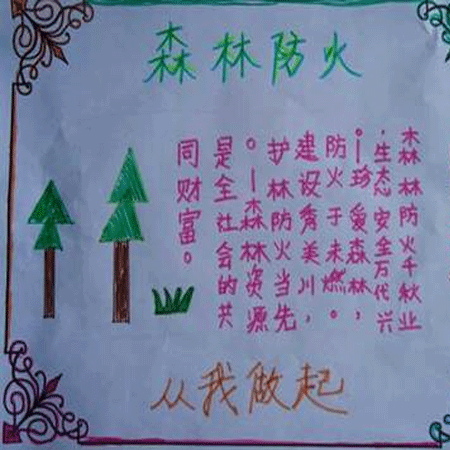 森林防火
森林防火千秋业
，生态安全万代兴
。—珍爱森林，
防火于未燃。
建设秀美川，
护林防火当先
。—森林资源
是全社会的共
同财富。
从我做起